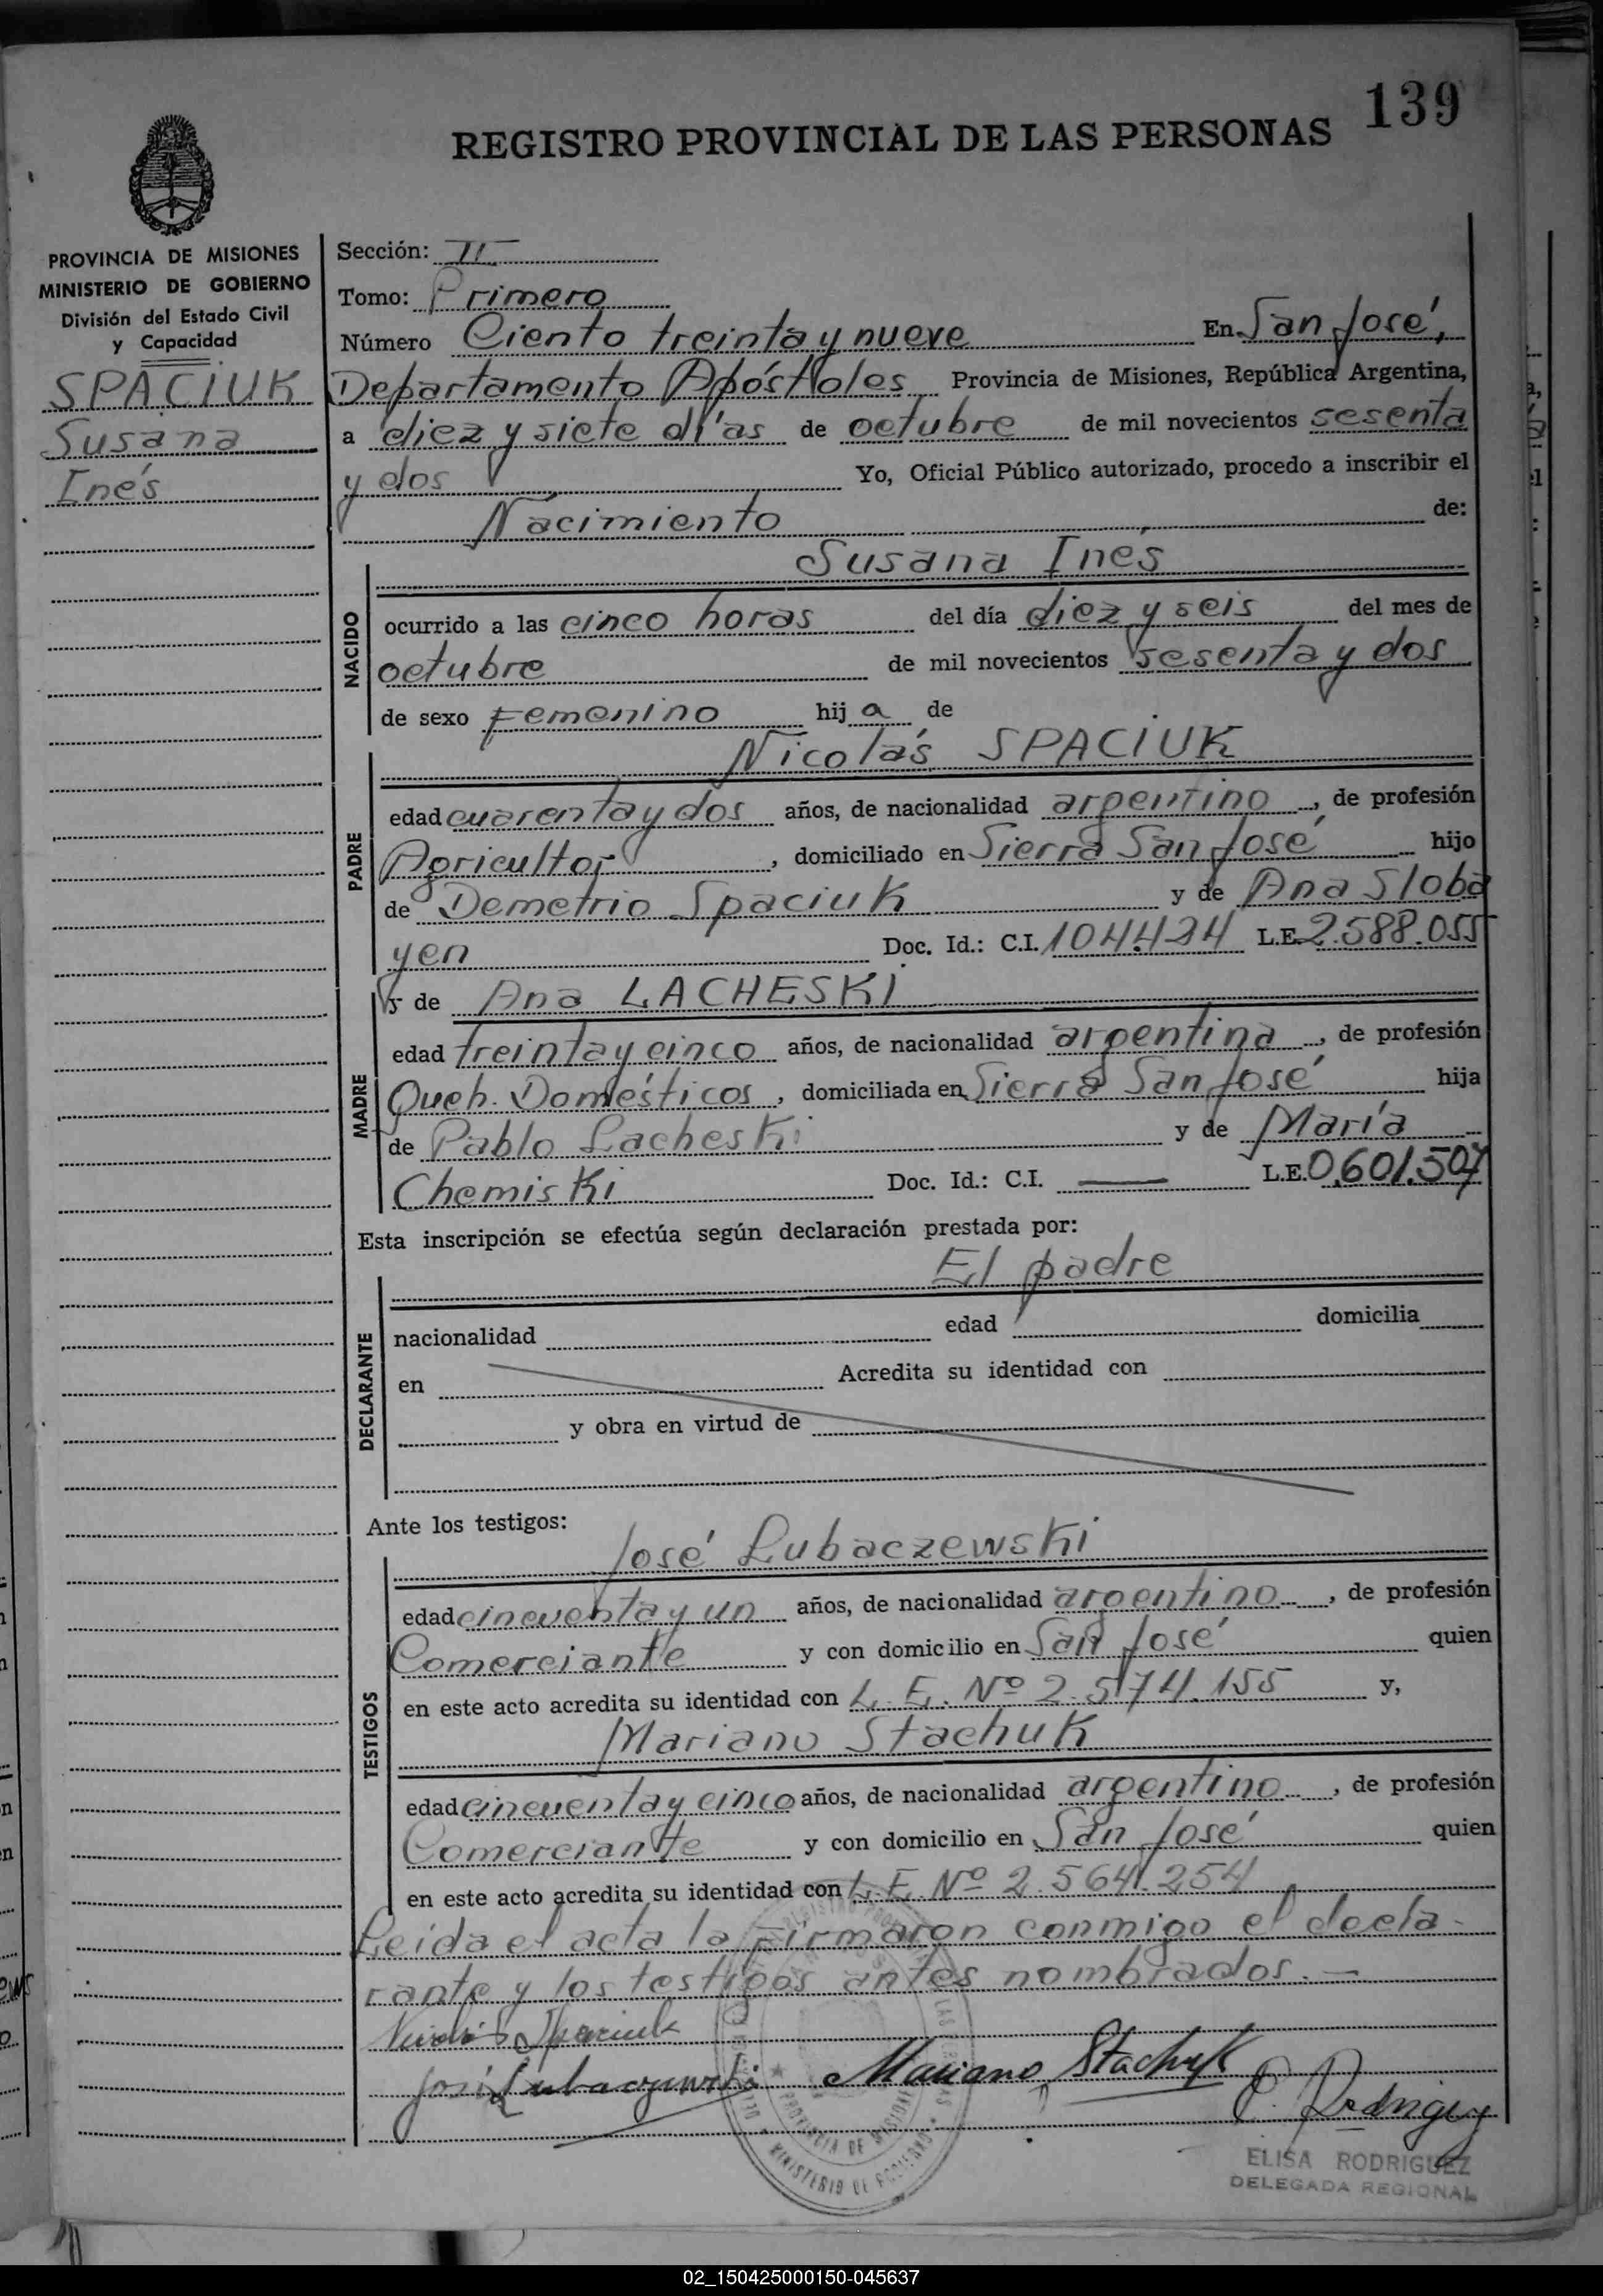 139
REGISTRO PROVINCIAL DE LAS PERSONAS
PROVINCIA DE MISIONES
MINISTERIO DE GOBIERNO
División del Estado Civil
y Capacidad
SPACIUK
Susana
Inés
Sección: II
Tomo: Primero
Número Ciento treinta y nueve En San José,
Departamento Apóstoles Provincia de Misiones, República Argentina,
a diez y siete días de octubre de mil novecientos sesenta
y dos Yo, Oficial Público autorizado, procedo a inscribir el
Nacimiento de:
Susana Inés
NACIDO
ocurrido a las cinco horas del día diez y seis del mes de
octubre de mil novecientos sesenta y dos
de sexo Femenino hij a de
Nicolás SPACIUK
PADRE
edad cuarenta y dos años, de nacionalidad argentino, de profesión
Agricultor, domiciliado en Sierra San José hijo
de Demetrio Spaciuk y de Ana Sloba
yen Doc. Id.: C.I. 104.424 L.E. 2.588.055
y de Ana LACHESKI
MADRE
edad treinta y cinco años, de nacionalidad argentina, de profesión
Queh. Domésticos, domiciliada en Sierra San José hija
de Pablo Lacheski y de María
Chemiski Doc. Id.: C.I. — L.E. 0.601.507
Esta inscripción se efectúa según declaración prestada por:
El padre
DECLARANTE
nacionalidad edad domicilia
en Acredita su identidad con
y obra en virtud de
Ante los testigos:
José Lubaczewski
TESTIGOS
edad cincuenta y un años, de nacionalidad argentino, de profesión
Comerciante y con domicilio en San José quien
en este acto acredita su identidad con L. E. Nº 2.574.155 y,
Mariano Stachuk
edad cincuenta y cinco años, de nacionalidad argentino, de profesión
Comerciante y con domicilio en San José quien
en este acto acredita su identidad con L. E. Nº 2.564.254
Leida el acta la firmaron conmigo el decla-
rante y los testigos antes nombrados.—
Nicolás Spaciuk
José Lubaczewski Mariano Stachuk
E. Rodriguez
PROVINCIA DE MISIONES
MINISTERIO DE GOBIERNO
ELISA RODRIGUEZ
DELEGADA REGIONAL
02_150425000150-045637